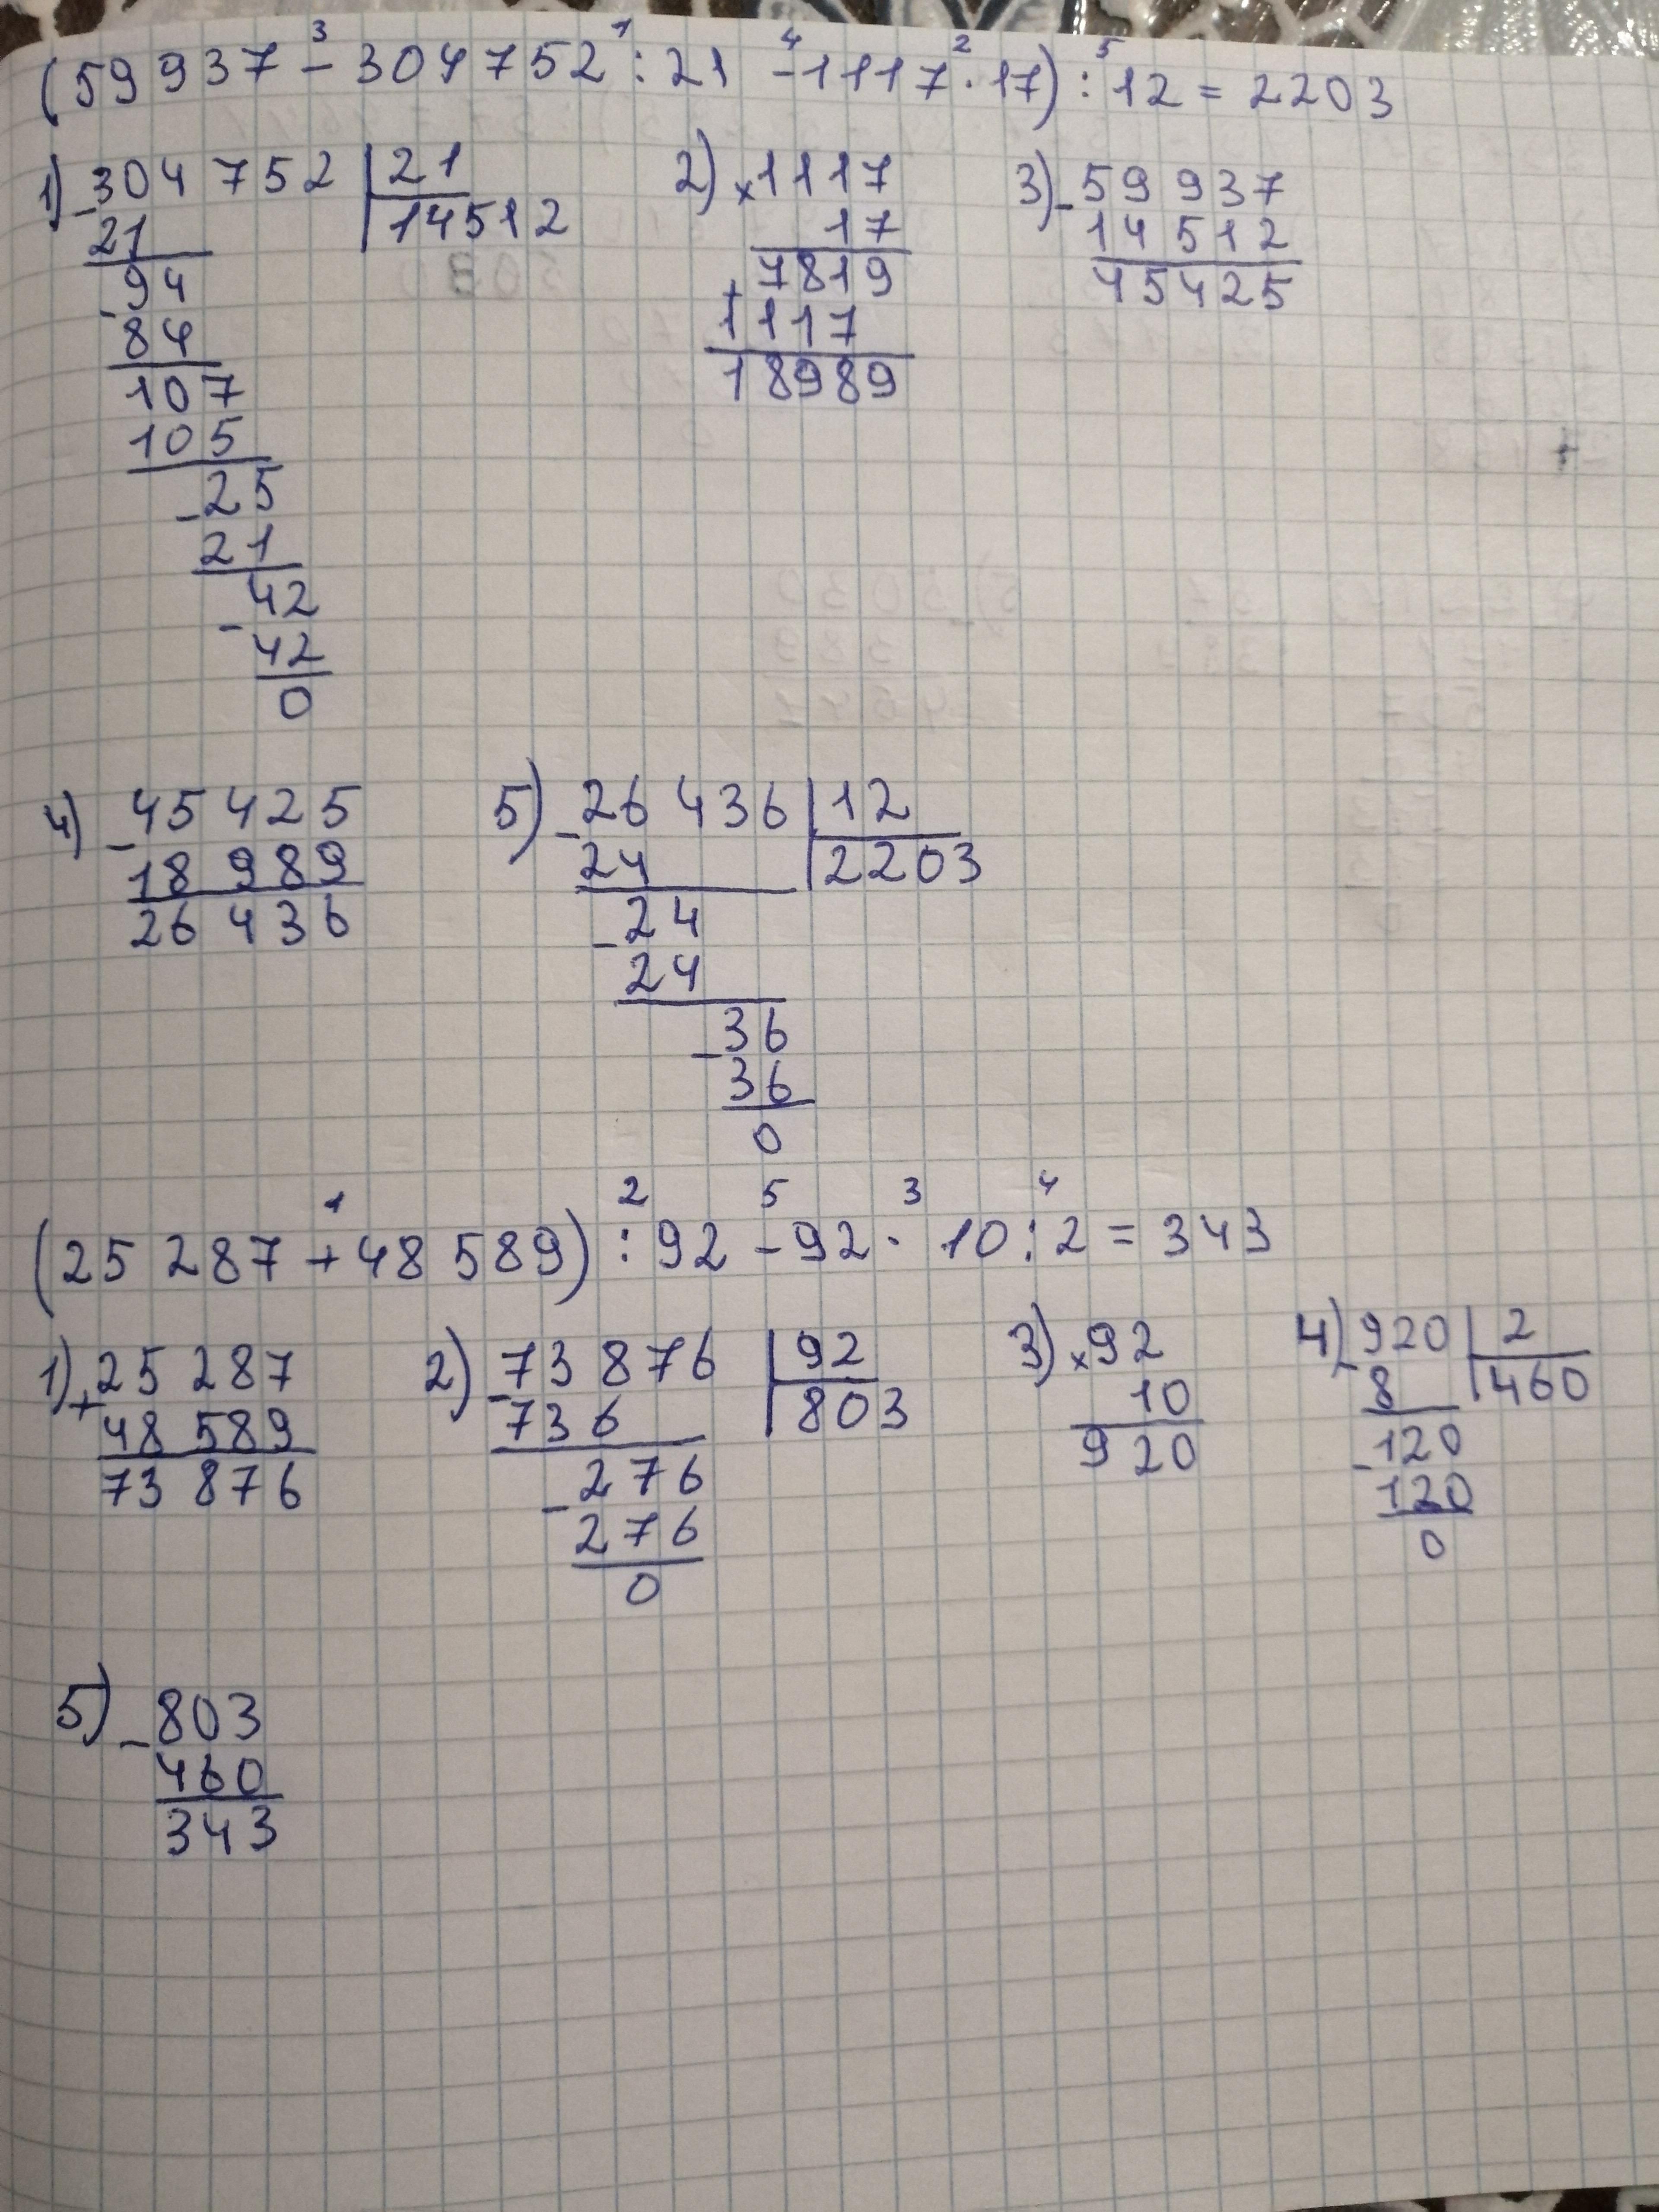 (59 937 - 304 752 : 21 - 1117 · 17) : 12 = 2203
3 1 4 2 5
1) - 304 752 | 21
21 14512
- 94
84
107
105
- 25
21
- 42
42
0
2) × 1117
17
+ 7819
1117
18989
3) - 59 937
14 512
45425
4) - 45 425
18 989
26 436
5) - 26 436 | 12
24 2203
- 24
24
- 36
36
0
1 2 5 3 4
(25 287 + 48 589) : 92 - 92 · 10 : 2 = 343
1) + 25 287
48 589
73 876
2) - 73 876 | 92
736 803
- 276
276
0
3) × 92
10
920
4) - 920 | 2
8 460
- 120
120
0
5) - 803
460
343